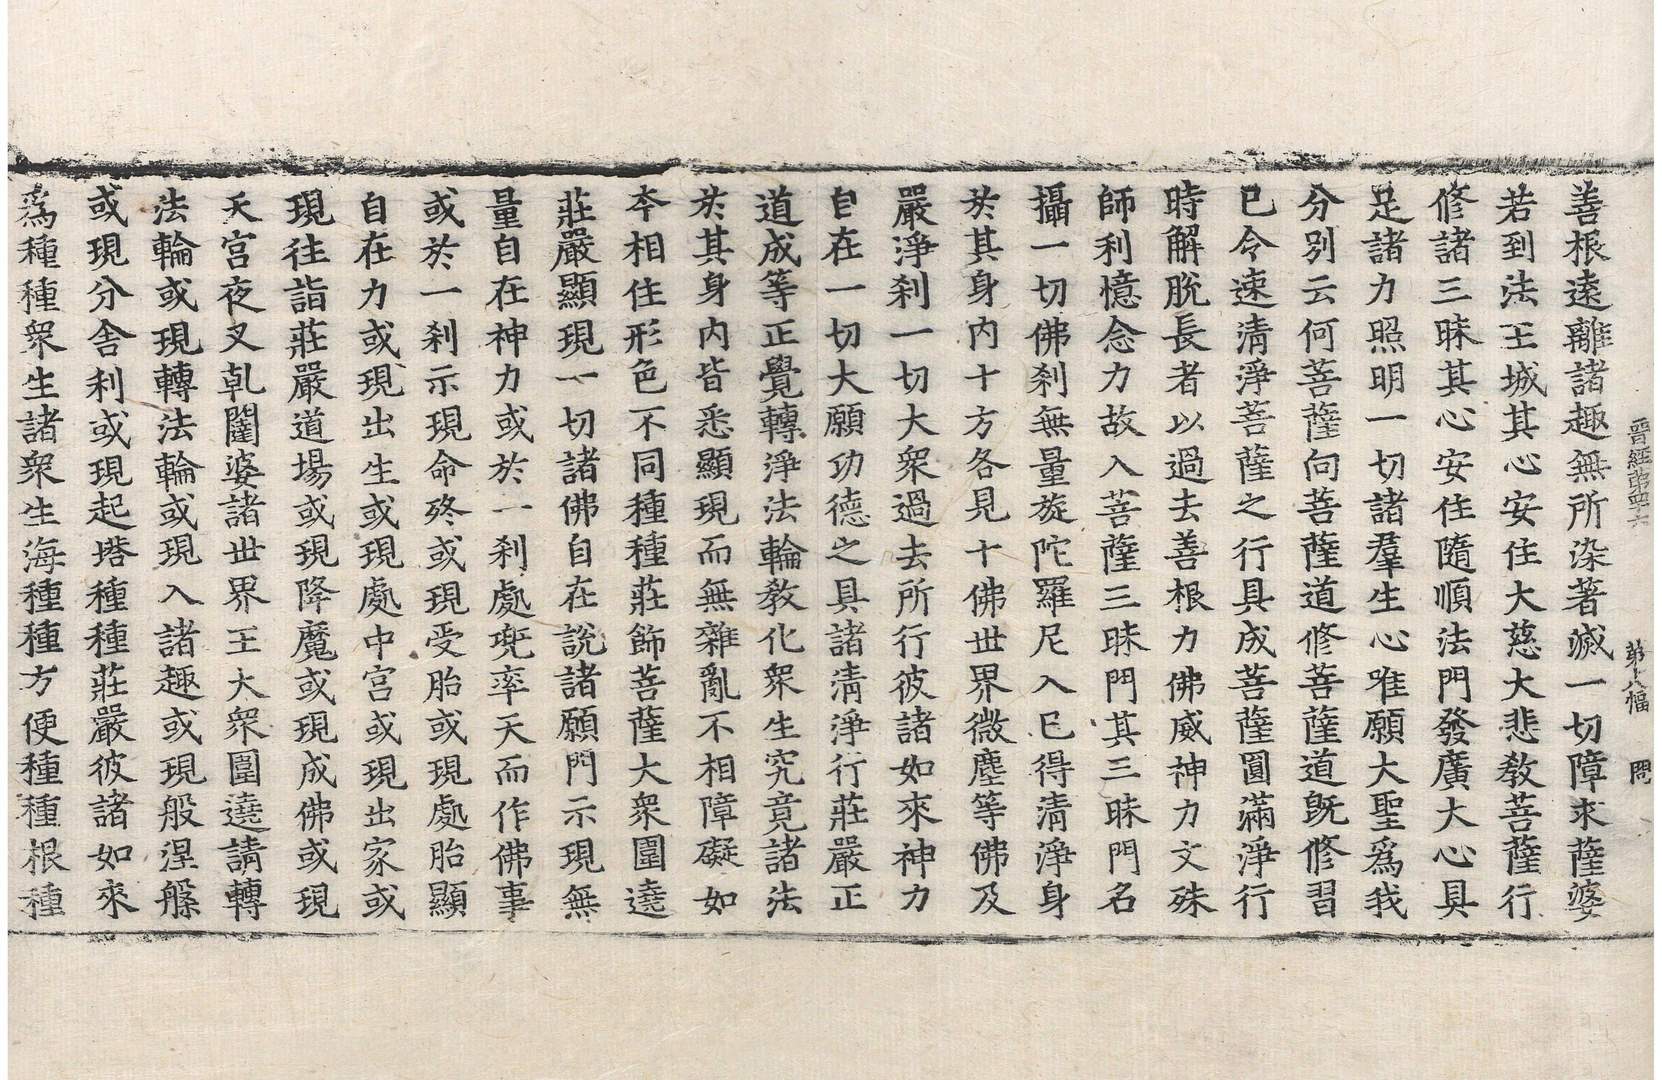 晉經第四十六 第十八幅 問
善根遠離諸趣無所染著滅一切障求薩婆
若到法王城其心安住大慈大悲教菩薩行
修諸三昧其心安住隨順法門發廣大心具
足諸力照明一切諸羣生心唯願大聖爲我
分別云何菩薩向菩薩道修菩薩道旣修習
已令速清淨菩薩之行具成菩薩圓滿淨行
時解脫長者以過去善根力佛威神力文殊
師利憶念力故入菩薩三昧門其三昧門名
攝一切佛刹無量旋陀羅尼入已得清淨身
於其身内十方各見十佛世界微塵等佛及
嚴淨刹一切大衆過去所行彼諸如來神力
自在一切大願功德之具諸清淨行莊嚴正
道成等正覺轉淨法輪教化衆生究竟諸法
於其身内皆悉顯現而無雜亂不相障礙如
本相住形色不同種種莊飾菩薩大衆圍遶
莊嚴顯現一切諸佛自在說諸願門示現無
量自在神力或於一刹處兜率天而作佛事
或於一刹示現命終或現受胎或現處胎顯
自在力或現出生或現處中宮或現出家或
現往詣莊嚴道場或現降魔或現成佛或現
天宮夜叉乹闥婆諸世界王大衆圍遶請轉
法輪或現轉法輪或現入諸趣或現般涅槃
或現分舍利或現起塔種種莊嚴彼諸如來
爲種種衆生諸衆生海種種方便種種根種